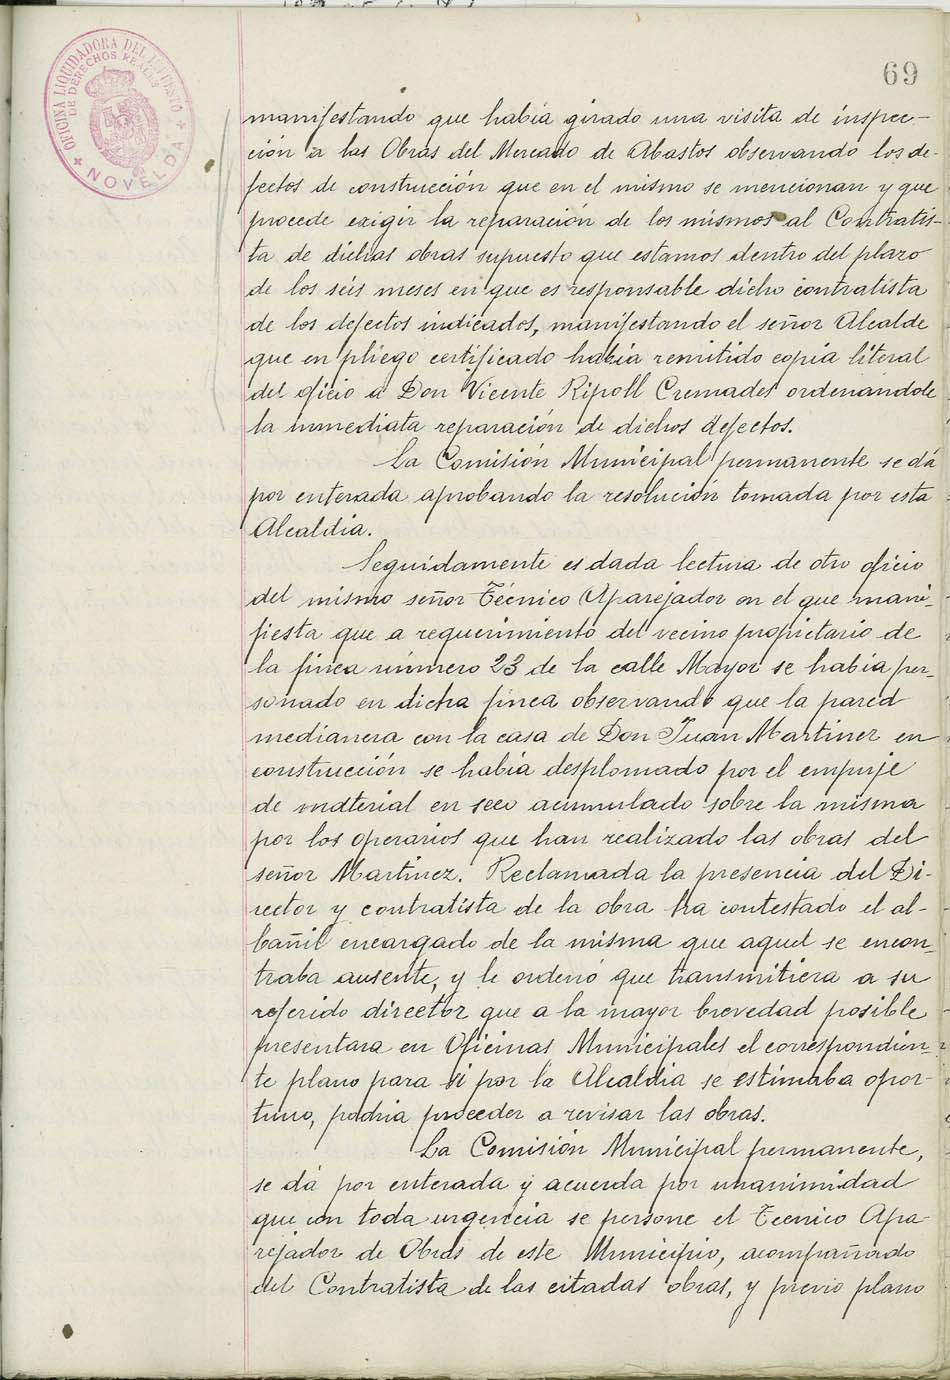 69
OFICINA LIQUIDADORA DEL IMPUESTO
DE DERECHOS REALES
NOVELDA
manifestando que había girado una visita de inspec-
ción a las Obras del Mercado de Abastos observando los de-
fectos de construcción que en el mismo se mencionan y que
procede exigir la reparación de los mismos al Contratis-
ta de dichas obras supuesto que estamos dentro del plazo
de los séis meses en que es responsable dicho contratista
de los defectos indicados, manifestando el señor Alcalde
que en pliego certificado había remitido copia literal
del oficio a Don Vicente Ripoll Cremades ordenándole
la inmediata reparación de dichos defectos.
La Comisión Municipal permanente se dá
por enterada aprobando la resolución tomada por esta
Alcaldía.
Seguidamente es dada lectura de otro oficio
del mismo señor Técnico Aparejador en el que mani-
fiesta que a requerimiento del vecino propietario de
la finca número 23 de la calle Mayor se había per-
sonado en dicha finca observando que la pared
medianera con la casa de Don Juan Martinez en
construcción se había desplomado por el empuje
de material en seco acumulado sobre la misma
por los operarios que han realizado las obras del
señor Martinez. Reclamada la presencia del Di-
rector y contratista de la obra ha contestado el al-
bañil encargado de la misma que aquel se encon-
traba ausente, y le ordenó que transmitiera a su
referido director que a la mayor brevedad posible
presentara en Oficinas Municipales el correspondien-
te plano para si por la Alcaldía se estimaba opor-
tuno, podría proceder a revisar las obras.
La Comisión Municipal permanente,
se dá por enterada y acuerda por unanimidad
que con toda urgencia se persone el Tecnico Apa-
rejador de Obras de este Municipio, acompañado
del Contratista de las citadas obras, y previo plano